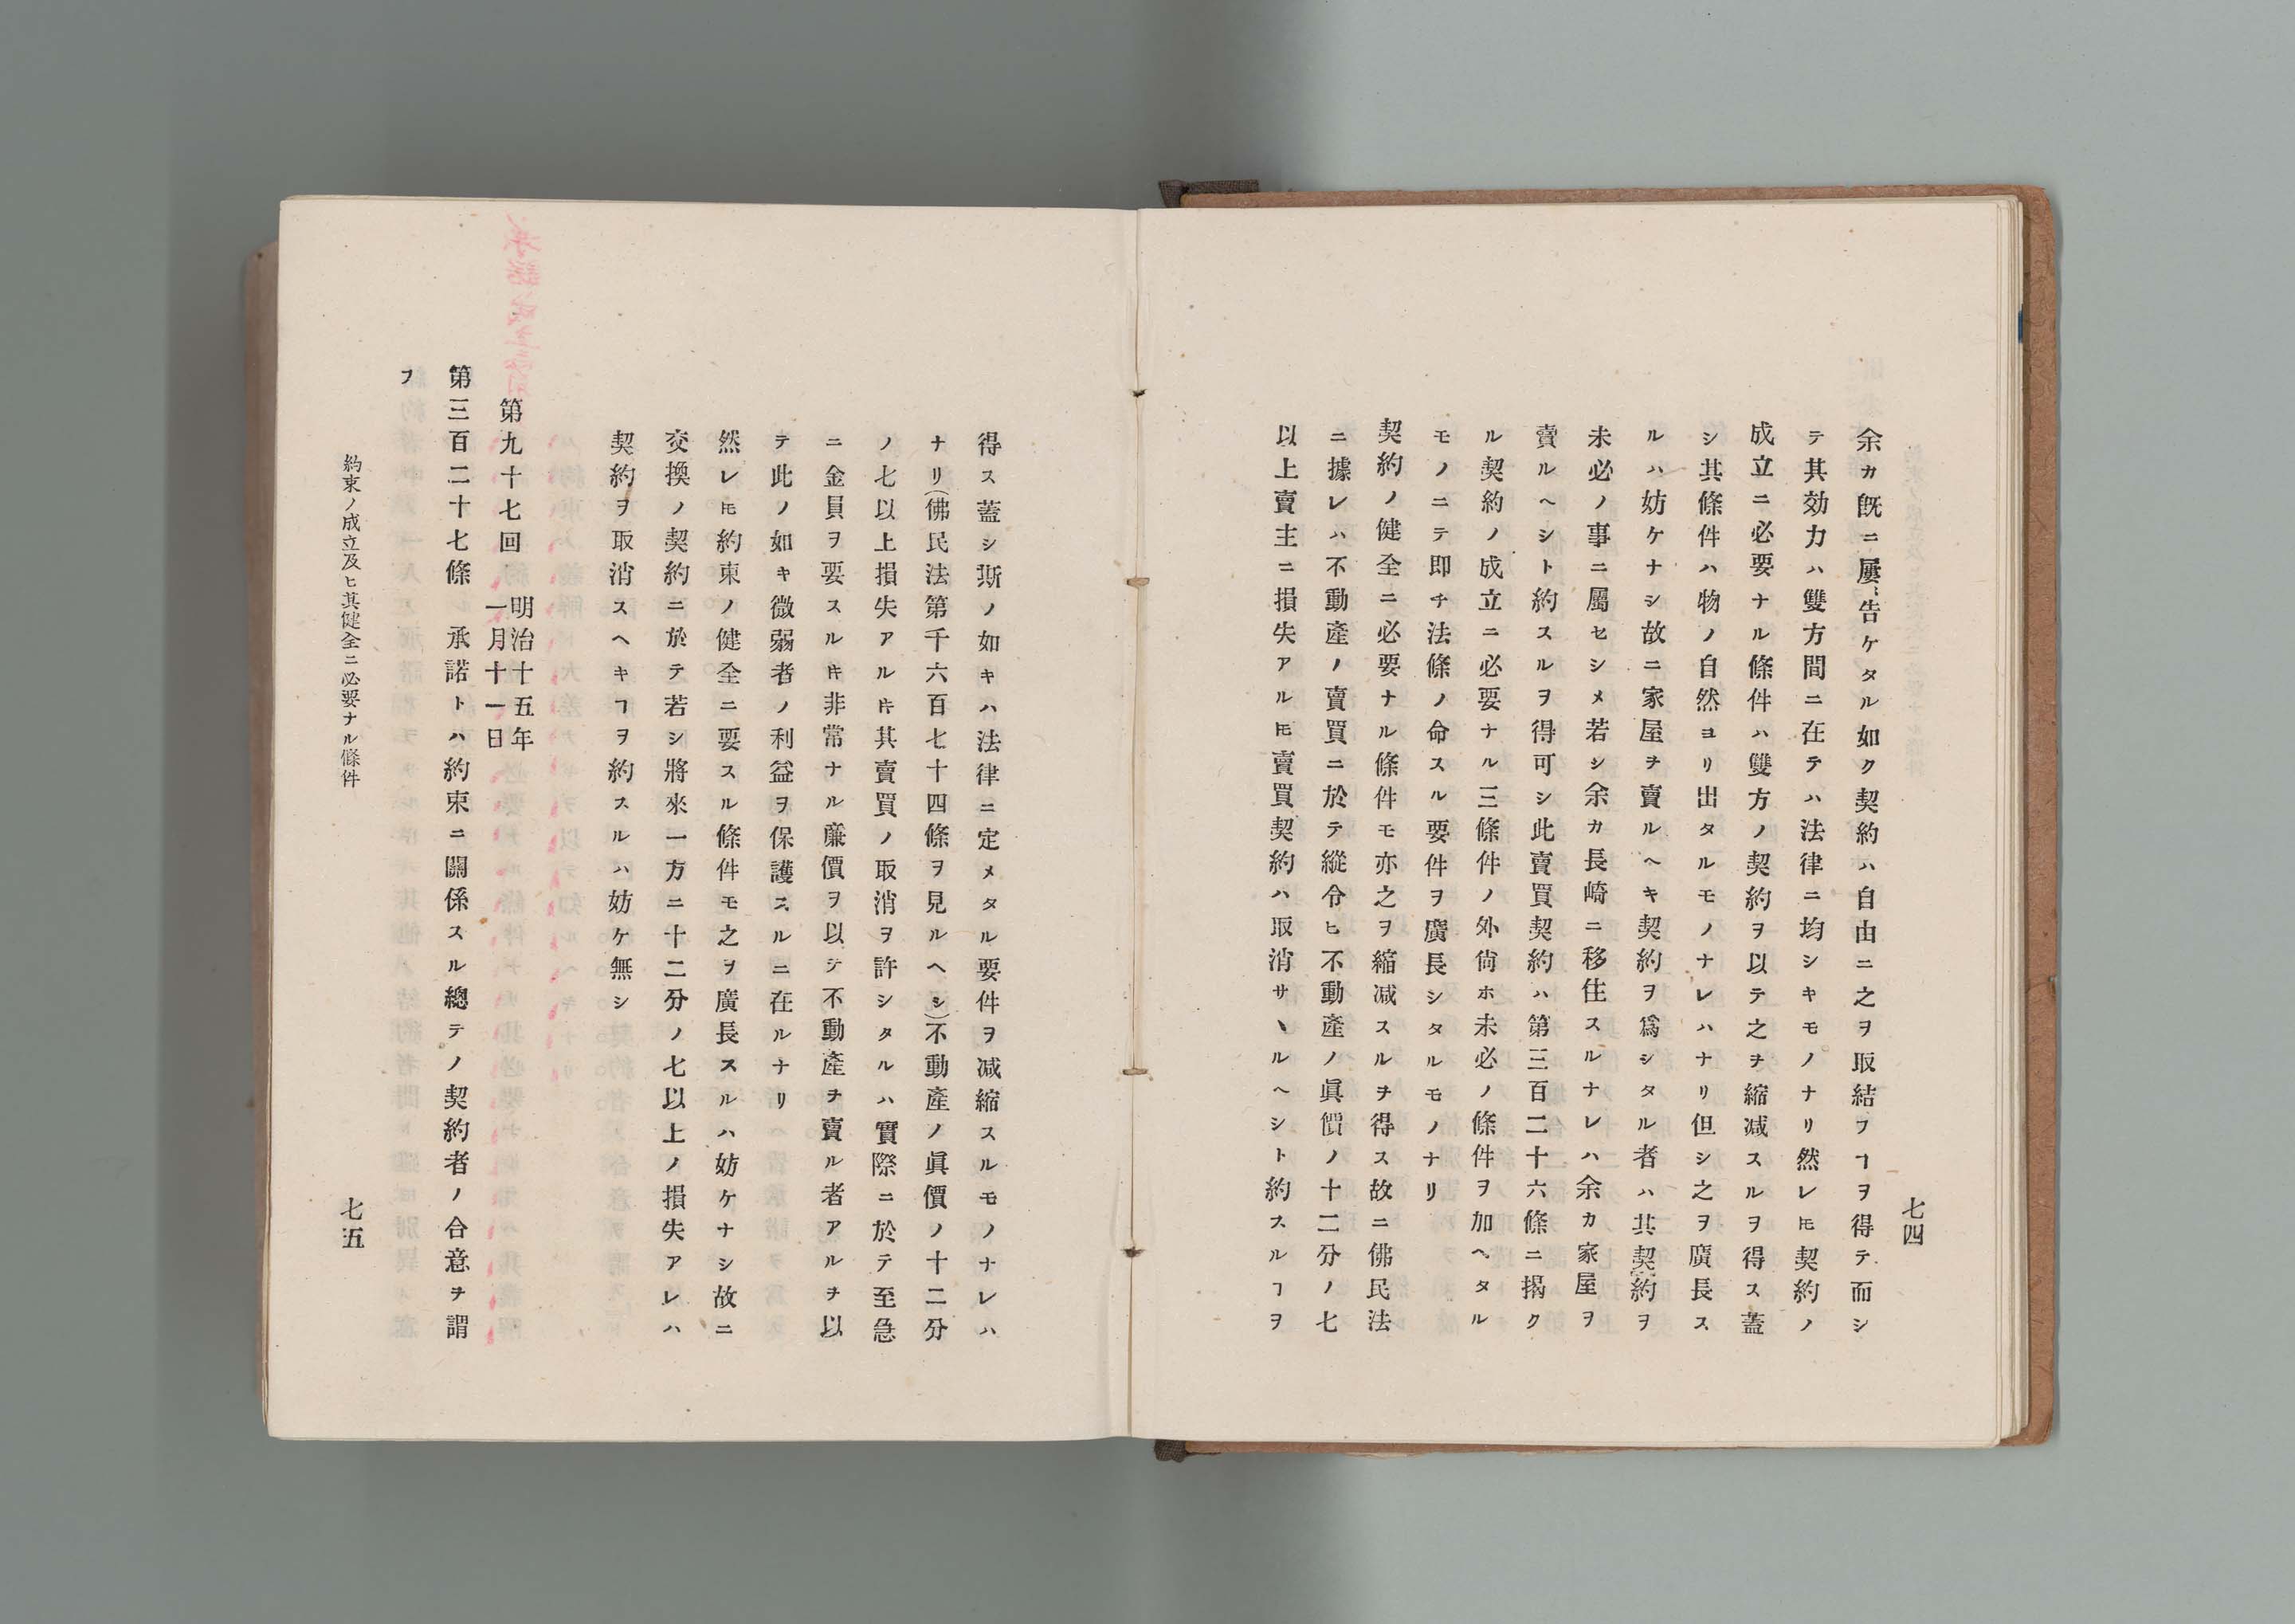 余カ既ニ屢〻告ケタル如ク契約ハ自由ニ之ヲ取結フヿヲ得テ而シ
テ其効力ハ雙方間ニ在テハ法律ニ均シキモノナリ然レ𪜈契約ノ
成立ニ必要ナル條件ハ雙方ノ契約ヲ以テ之ヲ縮减スルヲ得ス蓋
シ其條件ハ物ノ自然ヨリ出タルモノナレハナリ但シ之ヲ廣長ス
ルハ妨ケナシ故ニ家屋ヲ賣ルヘキ契約ヲ爲シタル者ハ其契約ヲ
未必ノ事ニ屬セシメ若シ余カ長崎ニ移住スルナレハ余カ家屋ヲ
賣ルヘシト約スルヲ得可シ此賣買契約ハ第三百二十六條ニ揭ク
ル契約ノ成立ニ必要ナル三條件ノ外尙ホ未必ノ條件ヲ加ヘタル
モノニテ即チ法條ノ命スル要件ヲ廣長シタルモノナリ
契約ノ健全ニ必要ナル條件モ亦之ヲ縮减スルヲ得ス故ニ佛民法
ニ據レハ不動產ノ賣買ニ於テ縱令ヒ不動產ノ眞價ノ十二分ノ七
以上賣主ニ損失アル𪜈賣買契約ハ取消サヽルヘシト約スルヿヲ
七四
得ス蓋シ斯ノ如キハ法律ニ定メタル要件ヲ减縮スルモノナレハ
ナリ(佛民法第千六百七十四條ヲ見ルヘシ)不動產ノ眞價ノ十二分
ノ七以上損失アル𪜈其賣買ノ取消ヲ許シタルハ實際ニ於テ至急
ニ金員ヲ要スル𪜈非常ナル廉價ヲ以テ不動產ヲ賣ル者アルヲ以
テ此ノ如キ微弱者ノ利益ヲ保護スルニ在ルナリ
然レ𪜈約束ノ健全ニ要スル條件モ之ヲ廣長スルハ妨ケナシ故ニ
交換ノ契約ニ於テ若シ將來一方ニ十二分ノ七以上ノ損失アレハ
契約ヲ取消スヘキヿヲ約スルハ妨ケ無シ
第九十七回 明治十五年
一月十一日
第三百二十七條 承諾トハ約束ニ關係スル總テノ契約者ノ合意ヲ謂
フ
約束ノ成立及ヒ其健全ニ必要ナル條件
七五